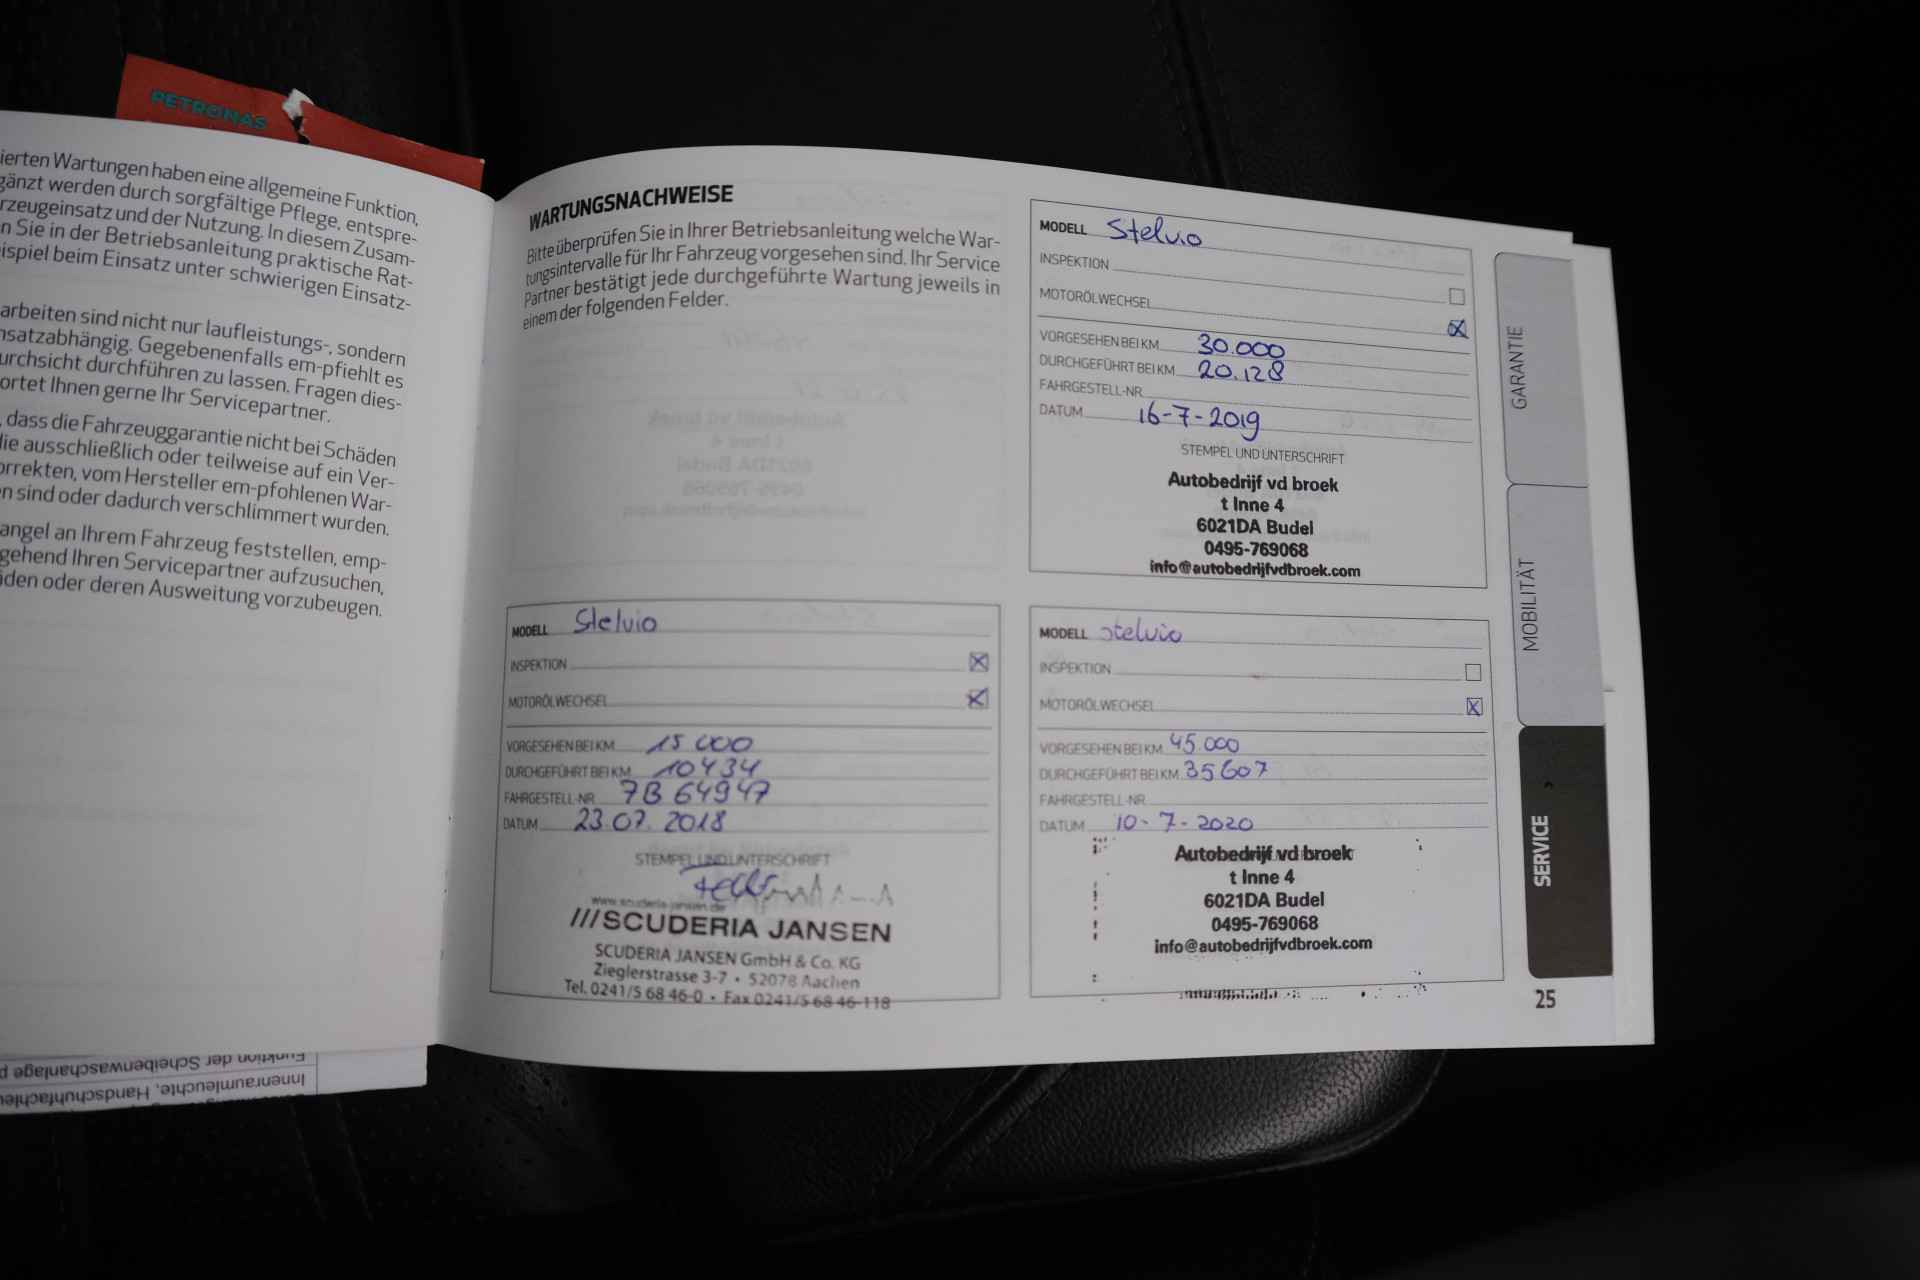 PETRONAS
ierten Wartungen haben eine allgemeine Funktion,
gänzt werden durch sorgfältige Pflege, entspre-
rzeugeinsatz und der Nutzung. In diesem Zusam-
n Sie in der Betriebsanleitung praktische Rat-
ispiel beim Einsatz unter schwierigen Einsatz-
arbeiten sind nicht nur laufleistungs-, sondern
nsatzabhängig. Gegebenenfalls em-pfiehlt es
urchsicht durchführen zu lassen. Fragen dies-
ortet Ihnen gerne Ihr Servicepartner.
, dass die Fahrzeuggarantie nicht bei Schäden
die ausschließlich oder teilweise auf ein Ver-
orrekten, vom Hersteller em-pfohlenen War-
en sind oder dadurch verschlimmert wurden.
angel an Ihrem Fahrzeug feststellen, emp-
gehend Ihren Servicepartner aufzusuchen,
äden oder deren Ausweitung vorzubeugen.
Funktion der Scheibenwaschanlage p
Innenraumleuchte, Handschuhfachleu
WARTUNGSNACHWEISE
Bitte überprüfen Sie in Ihrer Betriebsanleitung welche War-
tungsintervalle für Ihr Fahrzeug vorgesehen sind. Ihr Service
Partner bestätigt jede durchgeführte Wartung jeweils in
einem der folgenden Felder.
MODELL Stelvio
INSPEKTION
MOTORÖLWECHSEL
VORGESEHEN BEI KM 30.000
DURCHGEFÜHRT BEI KM 20.128
FAHRGESTELL-NR
DATUM 16-7-2019
STEMPEL UND UNTERSCHRIFT
Autobedrijf vd broek
t Inne 4
6021DA Budel
0495-769068
info@autobedrijfvdbroek.com
MODELL Stelvio
INSPEKTION
MOTORÖLWECHSEL
VORGESEHEN BEI KM 15 000
DURCHGEFÜHRT BEI KM 10434
FAHRGESTELL-NR 7B 64947
DATUM 23.07.2018
STEMPEL UND UNTERSCHRIFT
www.scuderia-jansen.de
///SCUDERIA JANSEN
SCUDERIA JANSEN GmbH & Co. KG
Zieglerstrasse 3-7 • 52078 Aachen
Tel. 0241/5 68 46-0 • Fax 0241/5 68 46-118
MODELL Stelvio
INSPEKTION
MOTORÖLWECHSEL
VORGESEHEN BEI KM 45.000
DURCHGEFÜHRT BEI KM 35607
FAHRGESTELL-NR
DATUM 10-7-2020
Autobedrijf vd broek
t Inne 4
6021DA Budel
0495-769068
info@autobedrijfvdbroek.com
GARANTIE
MOBILITÄT
SERVICE
25